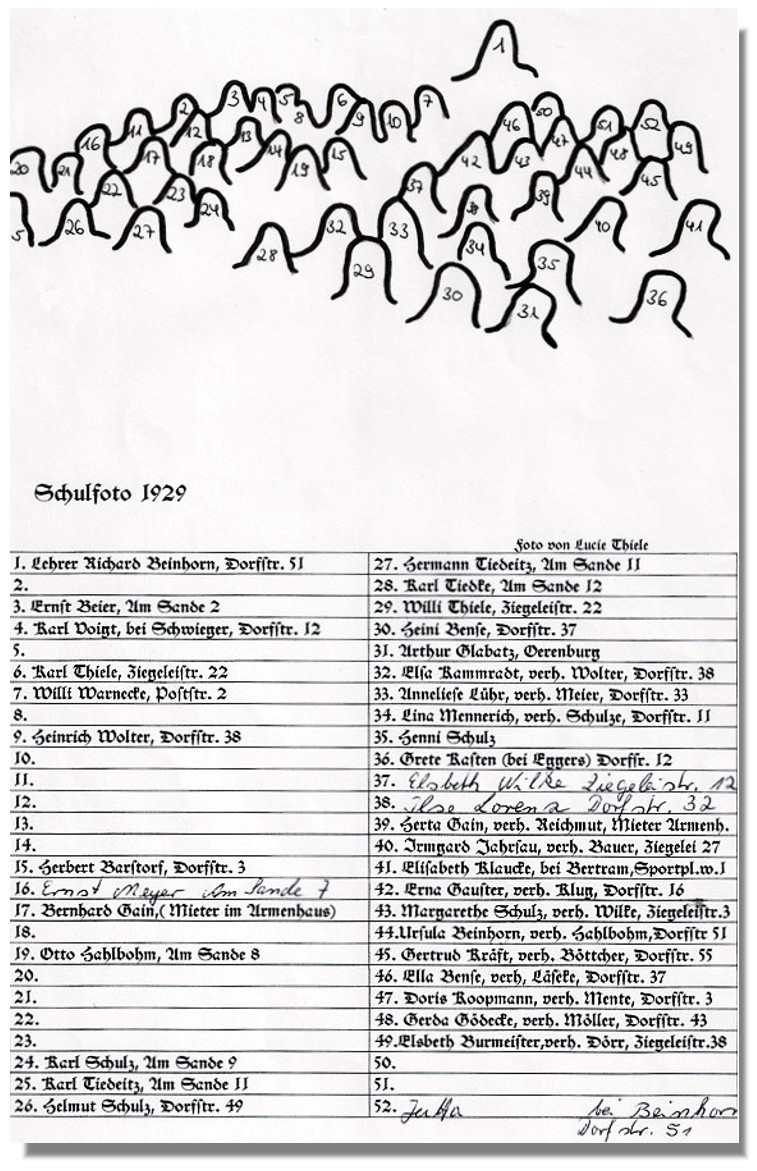 1
2 3 4 5 6 7
8 9 10 11 12 13 14 15
16 17 18 19
20 21 22 23 24
5 26 27 28
29 30 31 32 33 34 35 36
37 38 39 40 41
42 43 44 45
46 47 48 49
50 51 52
Schulfoto 1929
Foto von Lucie Thiele
1. Lehrer Richard Beinhorn, Dorfstr. 51
2.
3. Ernst Beier, Am Sande 2
4. Karl Voigt, bei Schwieger, Dorfstr. 12
5.
6. Karl Thiele, Ziegeleistr. 22
7. Willi Warnecke, Poststr. 2
8.
9. Heinrich Wolter, Dorfstr. 38
10.
11.
12.
13.
14.
15. Herbert Barstorf, Dorfstr. 3
16. Ernst Meyer Am Sande 7
17. Bernhard Gain,( Mieter im Armenhaus)
18.
19. Otto Hahlbohm, Am Sande 8
20.
21.
22.
23.
24. Karl Schulz, Am Sande 9
25. Karl Tiedeitz, Am Sande 11
26. Helmut Schulz, Dorfstr. 49
27. Hermann Tiedeitz, Am Sande 11
28. Karl Tiedke, Am Sande 12
29. Willi Thiele, Ziegeleistr. 22
30. Heini Bense, Dorfstr. 37
31. Arthur Glabatz, Oerenburg
32. Elsa Kammradt, verh. Wolter, Dorfstr. 38
33. Anneliese Lühr, verh. Meier, Dorfstr. 33
34. Lina Mennerich, verh. Schulze, Dorfstr. 11
35. Henni Schulz
36. Grete Kasten (bei Eggers) Dorfsr. 12
37. Elsbeth Wilke Ziegeleistr. 12
38. Ilse Lorenz Dorfstr. 32
39. Herta Gain, verh. Reichmut, Mieter Armenh.
40. Irmgard Jahrsau, verh. Bauer, Ziegelei 27
41. Elisabeth Klaucke, bei Bertram,Sportpl.w.1
42. Erna Gauster, verh. Klug, Dorfstr. 16
43. Margarethe Schulz, verh. Wilke, Ziegeleistr.3
44.Ursula Beinhorn, verh. Hahlbohm,Dorfstr 51
45. Gertrud Kräft, verh. Böttcher, Dorfstr. 55
46. Ella Bense, verh, Läseke, Dorfstr. 37
47. Doris Koopmann, verh. Mente, Dorfstr. 3
48. Gerda Gödecke, verh. Möller, Dorfstr. 43
49.Elsbeth Burmeister,verh. Dörr, Ziegeleistr.38
50.
51.
52. Jutta bei Beinhorn
Dorfstr. 51